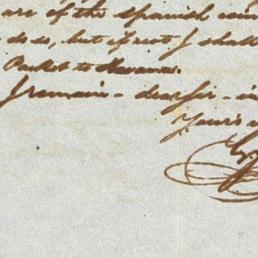 are of the Spanish
do so, but if not I shall
Packet to Havana.
I remain - dear Sir -
Yours